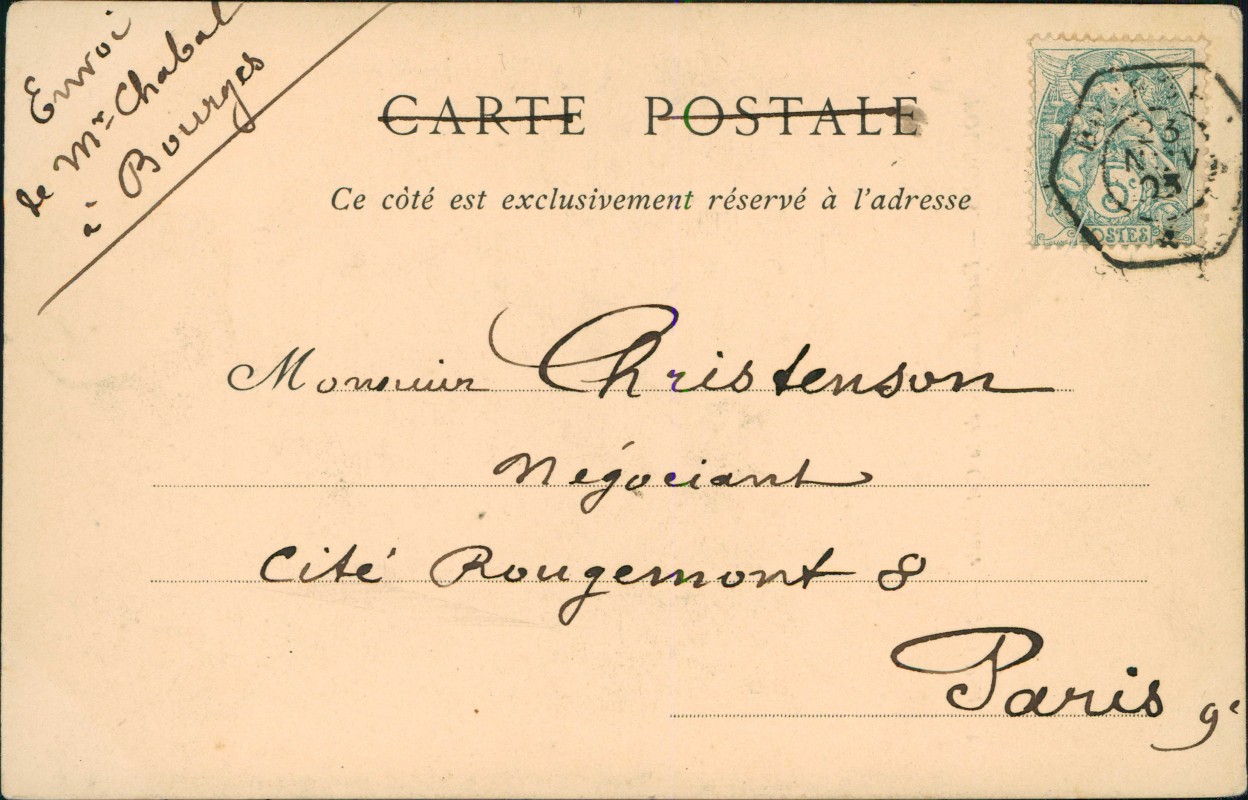 Envoi
de Mr Chabal
à Bourges
CARTE POSTALE
Ce côté est exclusivement réservé à l'adresse
5c
POSTES
23
03
Monsieur Christenson
Négociant
Cité Rougemont 8
Paris 9e